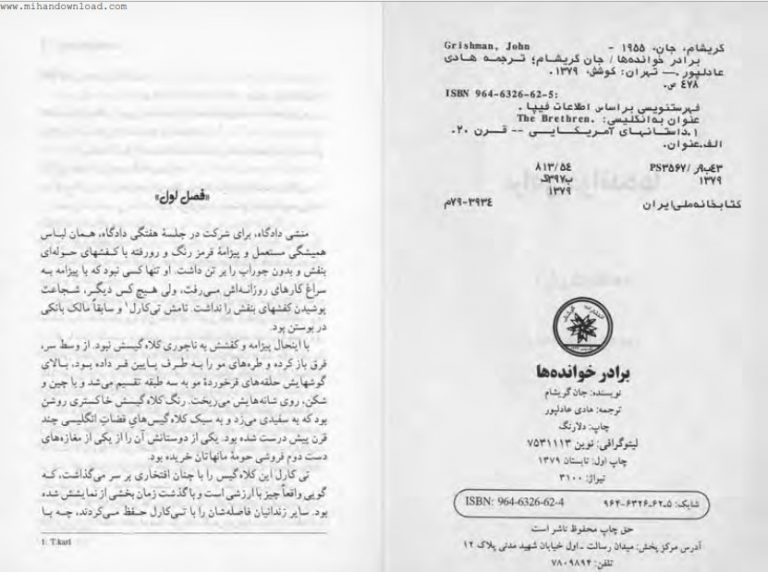 www.mihandownload.com
گریشام، جان، ۱۹۵۵ - Grishman, John
برادر خوانده‌ها / جان گریشام؛ ترجمه هادی
عادلپور. — تهران: کوشش، ۱۳۷۹.
۴۷۸ ص.
ISBN 964-6326-62-5:
فهرستنویسی براساس اطلاعات فیپا .
عنوان به انگلیسی: The Brethren.
۱. داستانهای آمریکایی -- قرن ۲۰.
الف. عنوان.
۸۱۳/۵۴ PS۳۵۶۷/ر۴ب۴۳
ب۳۹۷گ ۱۳۷۹
۱۳۷۹
کتابخانه ملی ایران ۳۹۳۴-۷۹م
برادر خوانده‌ها
نویسنده: جان گریشام
ترجمه: هادی عادلپور
چاپ: دلارنگ
لیتوگرافی: نوین ۷۵۳۱۱۱۳
چاپ اول: تابستان ۱۳۷۹
تیراژ: ۳۱۰۰
شابک: ۵-۶۲-۶۳۲۶-۹۶۴ ISBN: 964-6326-62-4
حق چاپ محفوظ ناشر است
آدرس مرکز پخش: میدان رسالت - اول خیابان شهید مدنی پلاک ۱۲
تلفن: ۷۸۰۹۸۹۴
«فصل اول»
منشی دادگاه، برای شرکت در جلسهٔ هفتگی دادگاه، همان لباس
همیشگی مستعمل و پیژامهٔ قرمز رنگ و رورفته با کفشهای حوله‌ای
بنفش و بدون جوراب را بر تن داشت. او تنها کسی نبود که با پیژامه به
سراغ کارهای روزانه‌اش می‌رفت، ولی هیچ کس دیگر، شجاعت
پوشیدن کفشهای بنفش را نداشت. نامش تی‌کارل۱ و سابقاً مالک بانکی
در بوستن بود.
با اینحال پیژامه و کفشش به ناجوری کلاه گیسش نبود. از وسط سر،
فرق باز کرده و طره‌های مو را به طرف پایین فر داده بود، بالای
گوشهایش حلقه‌های فرخوردهٔ مو به سه طبقه تقسیم می‌شد و با چین و
شکن، روی شانه‌هایش می‌ریخت. رنگ کلاه گیسش خاکستری روشن
بود که به سفیدی می‌زد و به سبک کلاه گیس‌های قضات انگلیسی چند
قرن پیش درست شده بود. یکی از دوستانش آن را از یکی از مغازه‌های
دست دوم فروشی حومهٔ مانهاتان خریده بود.
تی کارل این کلاه گیس را با چنان افتخاری بر سر می‌گذاشت، که
گویی واقعاً چیز با ارزشی است و با گذشت زمان بخشی از نمایشش شده
بود. سایر زندانیان فاصله‌شان را با تی‌کارل حفظ می‌کردند، چه با
1. T.karl